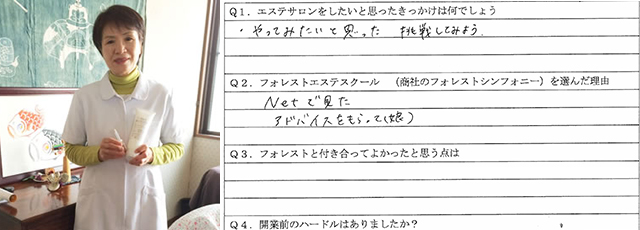 Q1．エステサロンをしたいと思ったきっかけは何でしょう
・やってみたいと思った 挑戦してみよう
Q2．フォレストエステスクール （商社のフォレストシンフォニー）を選んだ理由
Netで見た
アドバイスをもらって(娘)
Q3．フォレストと付き合ってよかったと思う点は
Q4．開業前のハードルはありましたか？